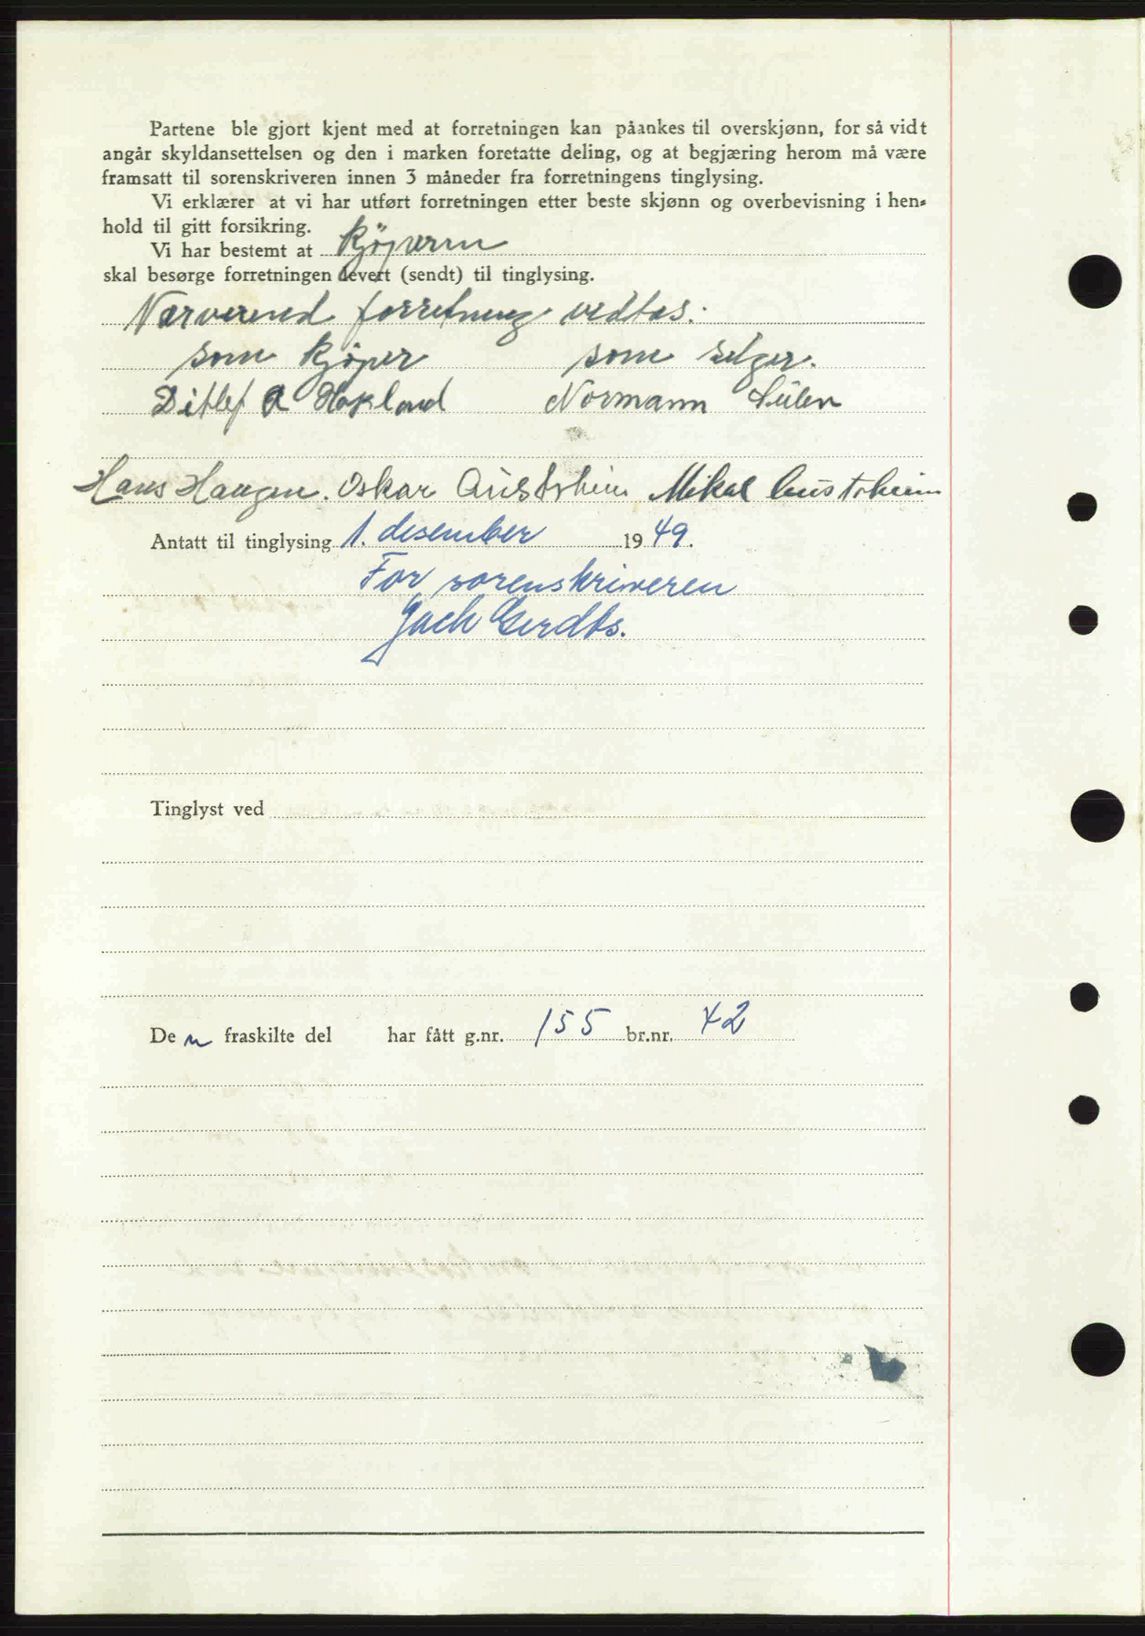 Partene ble gjort kjent med at forretningen kan påankes til overskjønn, for så vidt
angår skyldansettelsen og den i marken foretatte deling, og at begjæring herom må være
framsatt til sorenskriveren innen 3 måneder fra forretningens tinglysing.
Vi erklærer at vi har utført forretningen etter beste skjønn og overbevisning i hen-
hold til gitt forsikring.
Vi har bestemt at kjøperen
skal besørge forretningen levert (sendt) til tinglysing.
Nærværend forretning vedtas.
som kjøper som selger.
Ditlef A Hokland Normann
Hans Haugen. Oskar Austrheim Mikal Austrheim
Antatt til tinglysing 1. desember 1949.
For sorenskriveren
Gerdts.
Tinglyst ved
Den fraskilte del har fått g.nr. 155 br.nr. 42